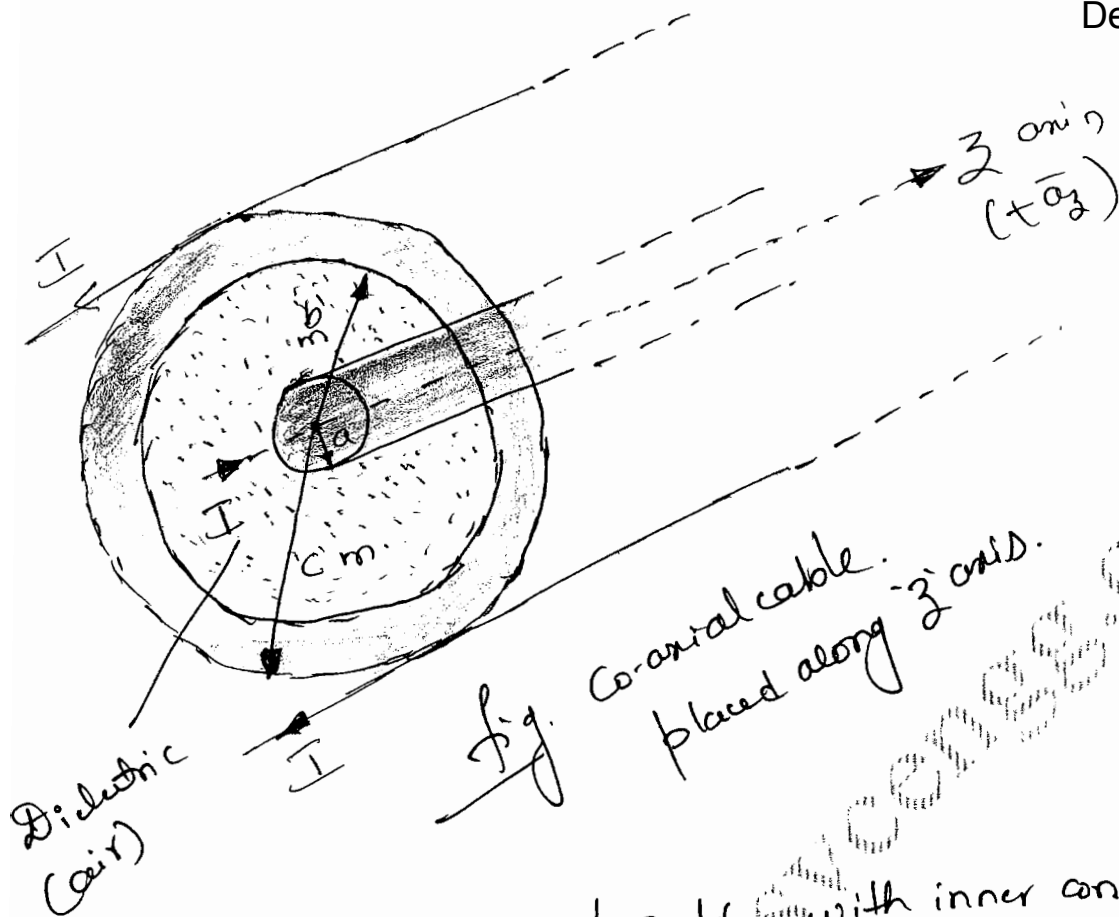 De
Z axis
(+ā_z)
I
b
m
a
I
c m.
I
Dielectric
(air)
fig. Co-axial cable.
placed along 'z' axis.
with inner con